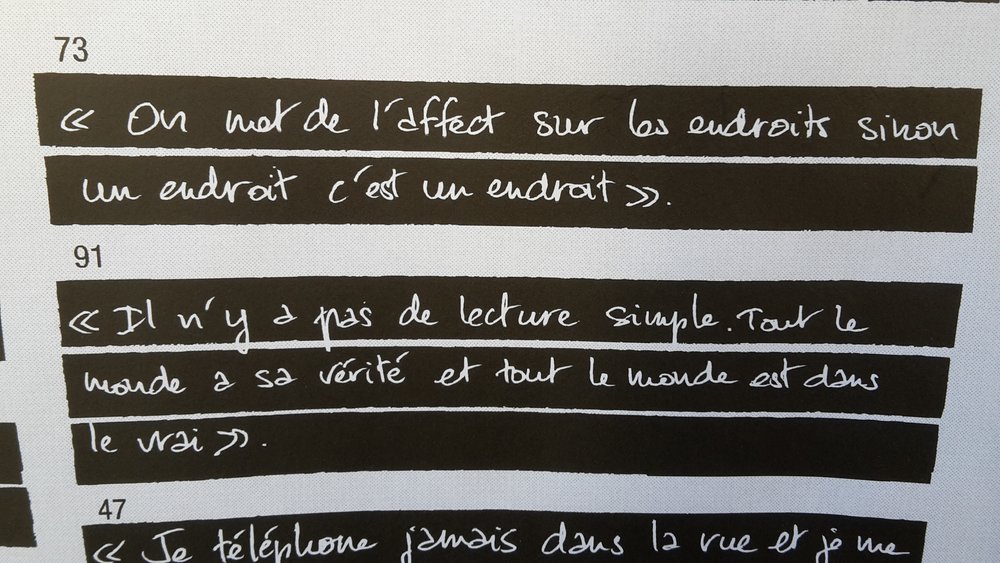 73
« On met de l'affect sur les endroits sinon
un endroit c'est un endroit ».
91
« Il n'y a pas de lecture simple. Tout le
monde a sa vérité et tout le monde est dans
le vrai ».
47
« Je téléphone jamais dans la rue et je me